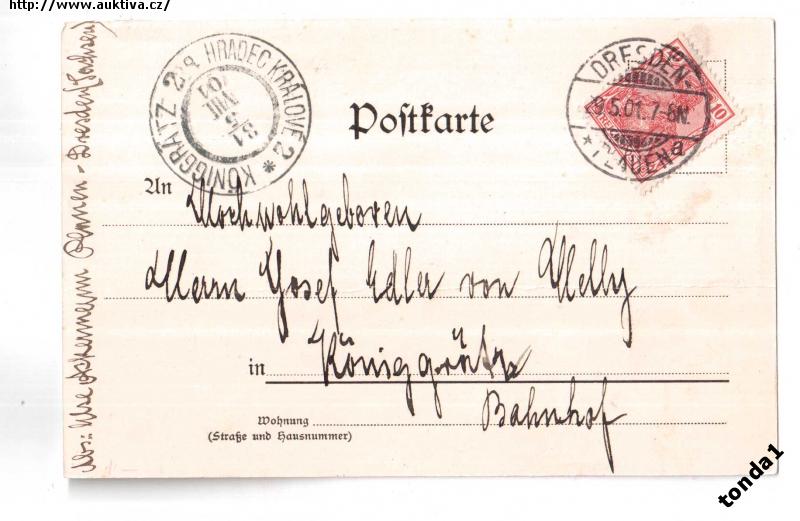 http://www.auktiva.cz/
HRADEC KRÁLOVÉ 2
KÖNIGGRÄTZ 2
31
5
VIII
01
DRESDEN-
5.01.7-8N.
*PLAUEN*
10
Postkarte
An Hochwohlgeboren
Herrn Josef Edler von Helly
in Königgrätz
Bahnhof
Wohnung
(Straße und Hausnummer)
Plauen - Dresden (Sachsen)
tonda1